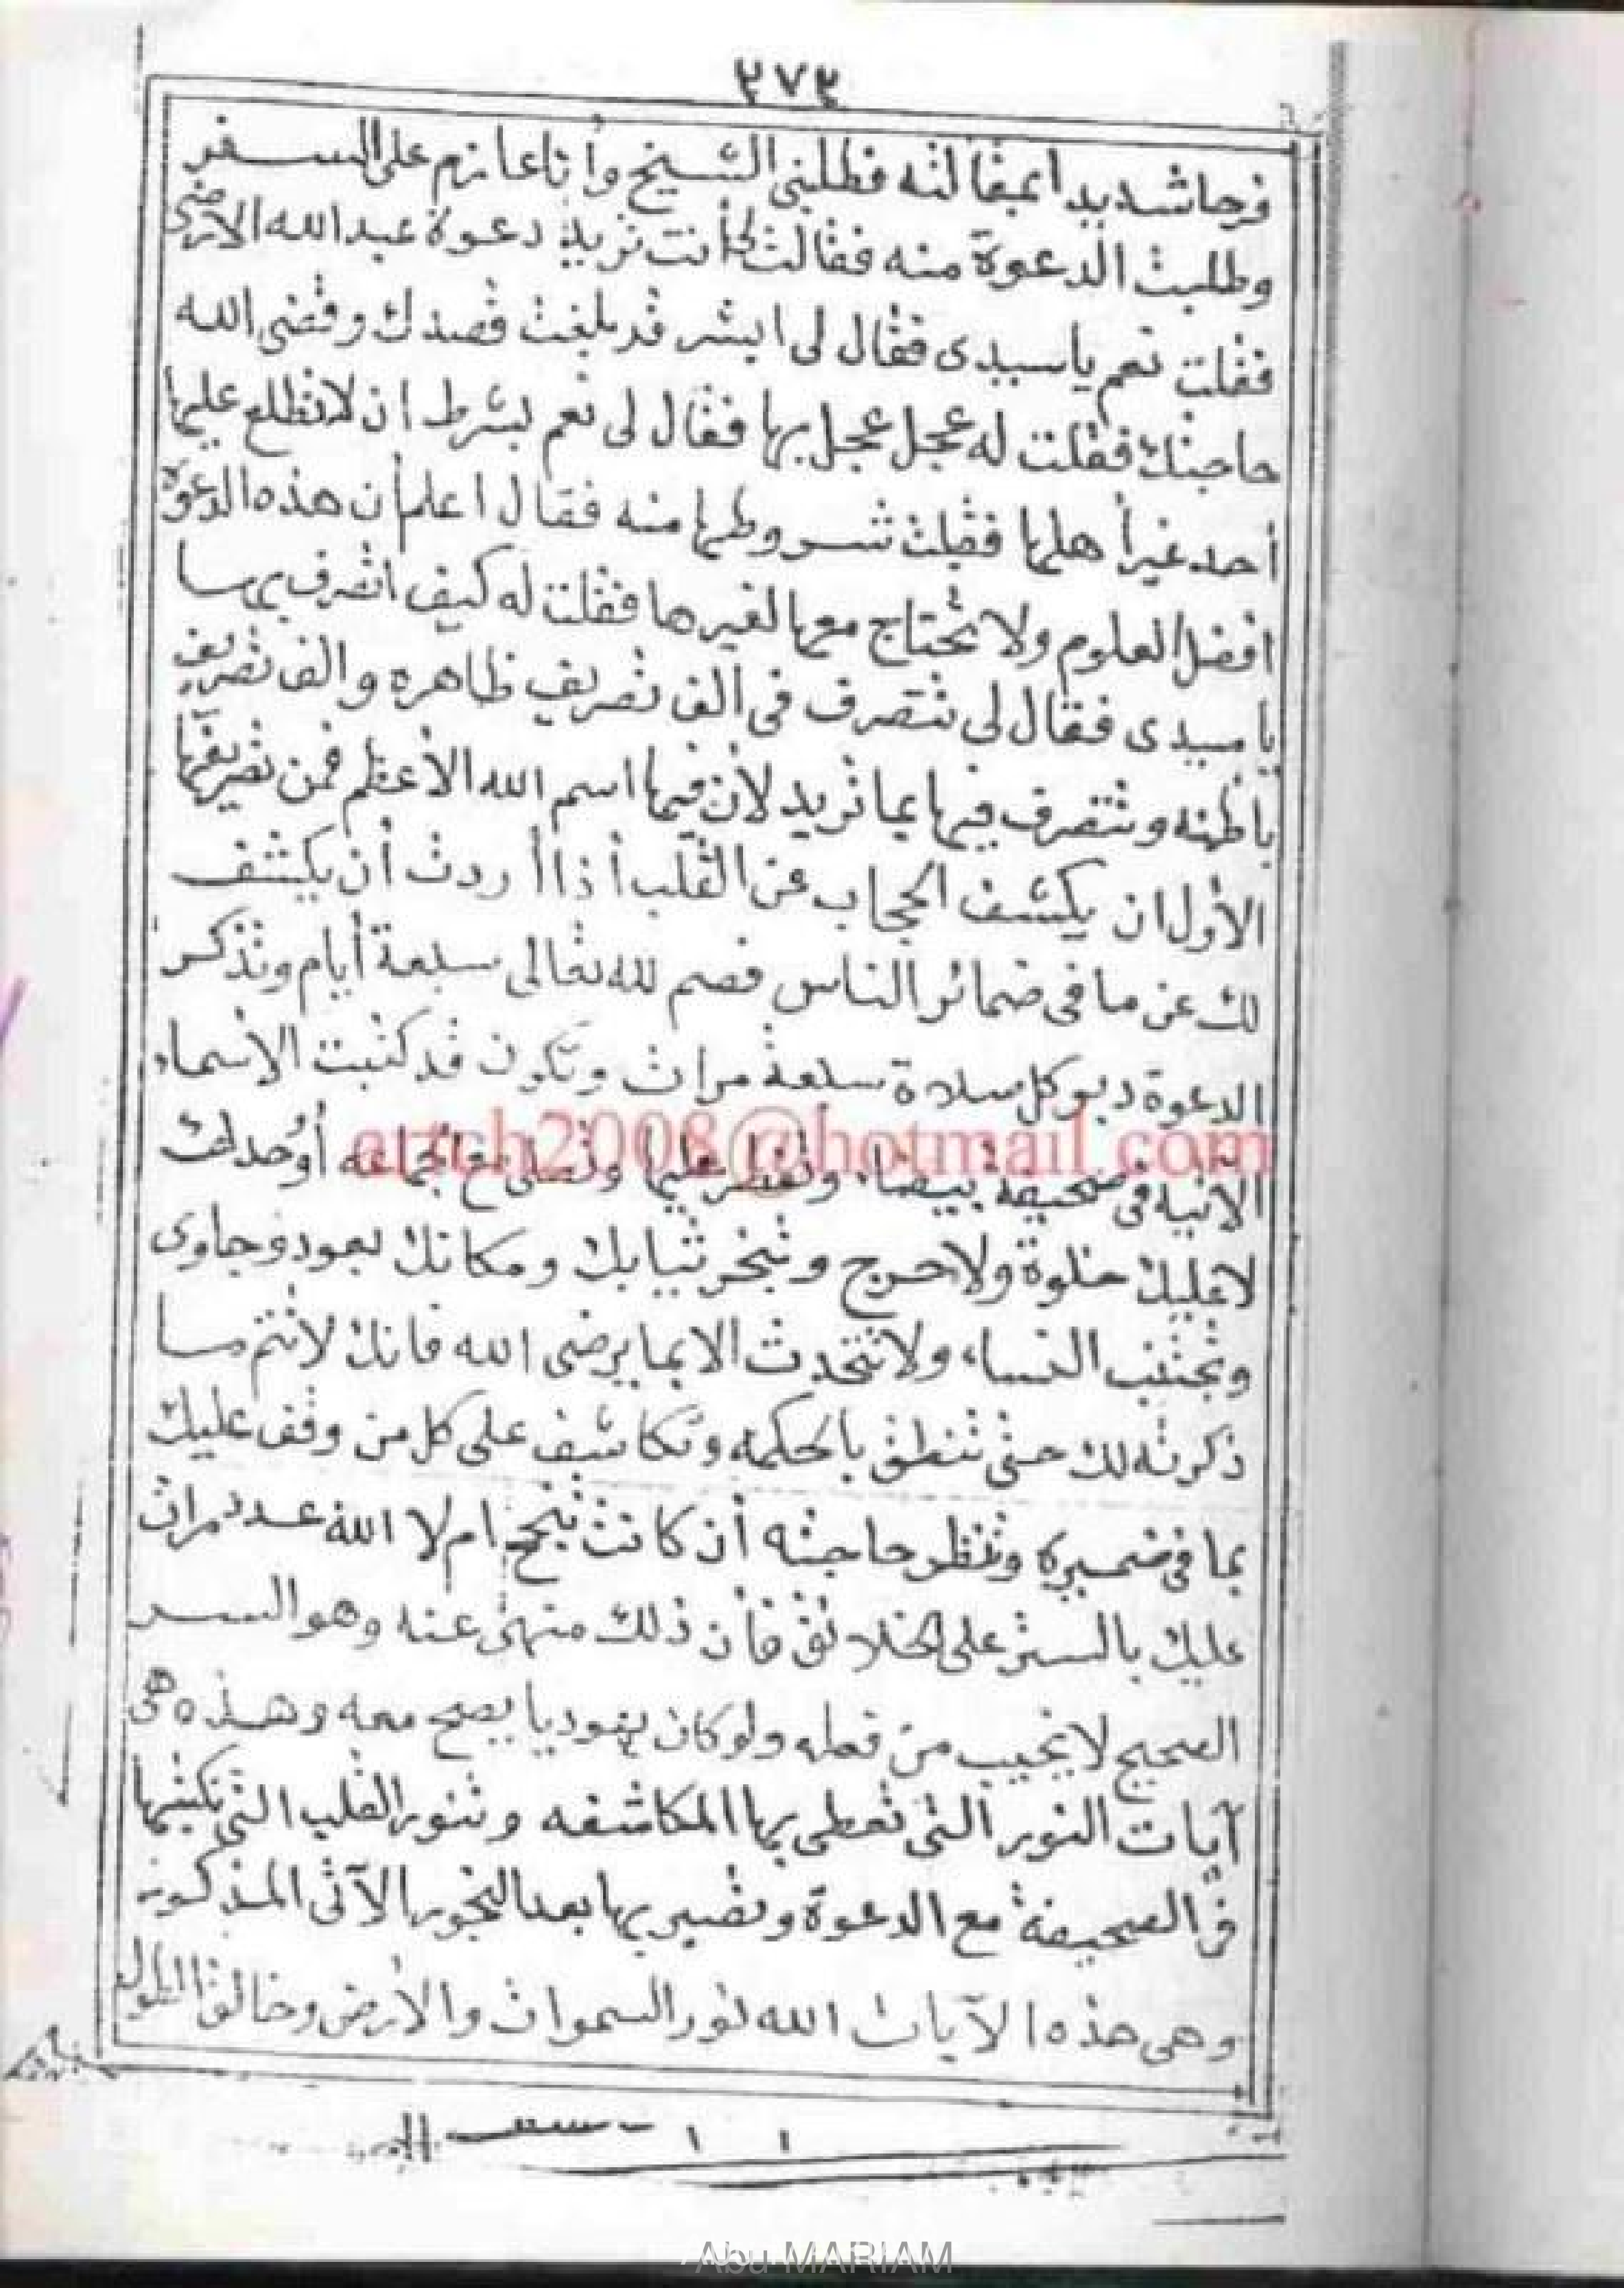 ٢٧٣
فرحا شديدا بمقالته فطلبنى الشيخ وأنا عازم على السفر
وطلبت الدعوة منه فقالت لى أنت تريد دعوة عبدالله الارضى
فقلت نعم ياسيدى فقال لى ابشر قد بلغت قصدك وقضى الله
حاجتك فقلت له عجل عجل بها فقال لى نعم بشرط ان لا تطلع عليها
أحد غير أهلها فقبلت شروطها منه فقال اعلم أن هذه الدعوة
افضل العلوم ولا تحتاج معها لغيرها فقلت له كيف اتصرف بها
يا سيدى فقال لى تتصرف فى الف تصريف ظاهره والف تصريف
باطنه وتتصرف فيها بما تريد لأن فيها اسم الله الأعظم فمن تصريفها
الأول ان يكشف الحجاب عن القلب أذا أردت أن يكشف
لك عن ما فى ضمائر الناس فصم لله تعالى سبعة أيام وتذكر
الدعوة دبر كل صلاة سبعة مرات وتكون قد كتبت الأسماء
الآتيه فى صحيفة بيضاء وتفطر عليها وتصلى مع الجماعه أو وحدك
artch2008@hotmail.com
لا عليك خلوة ولا حرج وتبخر ثيابك ومكانك بعود وجاوى
وتجتنب النساء ولا تتحدث الا بما يرضى الله فانك لا تتم ما
ذكرته لك حتى تنطق بالحكمه وتكاشف على كل من وقف عليك
بما فى ضميره وتنظر حاجته أن كانت تنجح ام لا الله عدد مرات
عليك بالستر على الخلائق فأن ذلك منهى عنه وهو السر
الصحيح لا يخيب من فعله ولو كان يهوديا يصح معه وهذه هى
آيات النور التى تعطى بها المكاشفه وتنور القلب التى تكتبها
فى الصحيفة مع الدعوة وتصير بها بعد البخور الآتى المذكور
وهى هذه الآيات الله نور السموات والأرض وخالق
Abu MARIAM